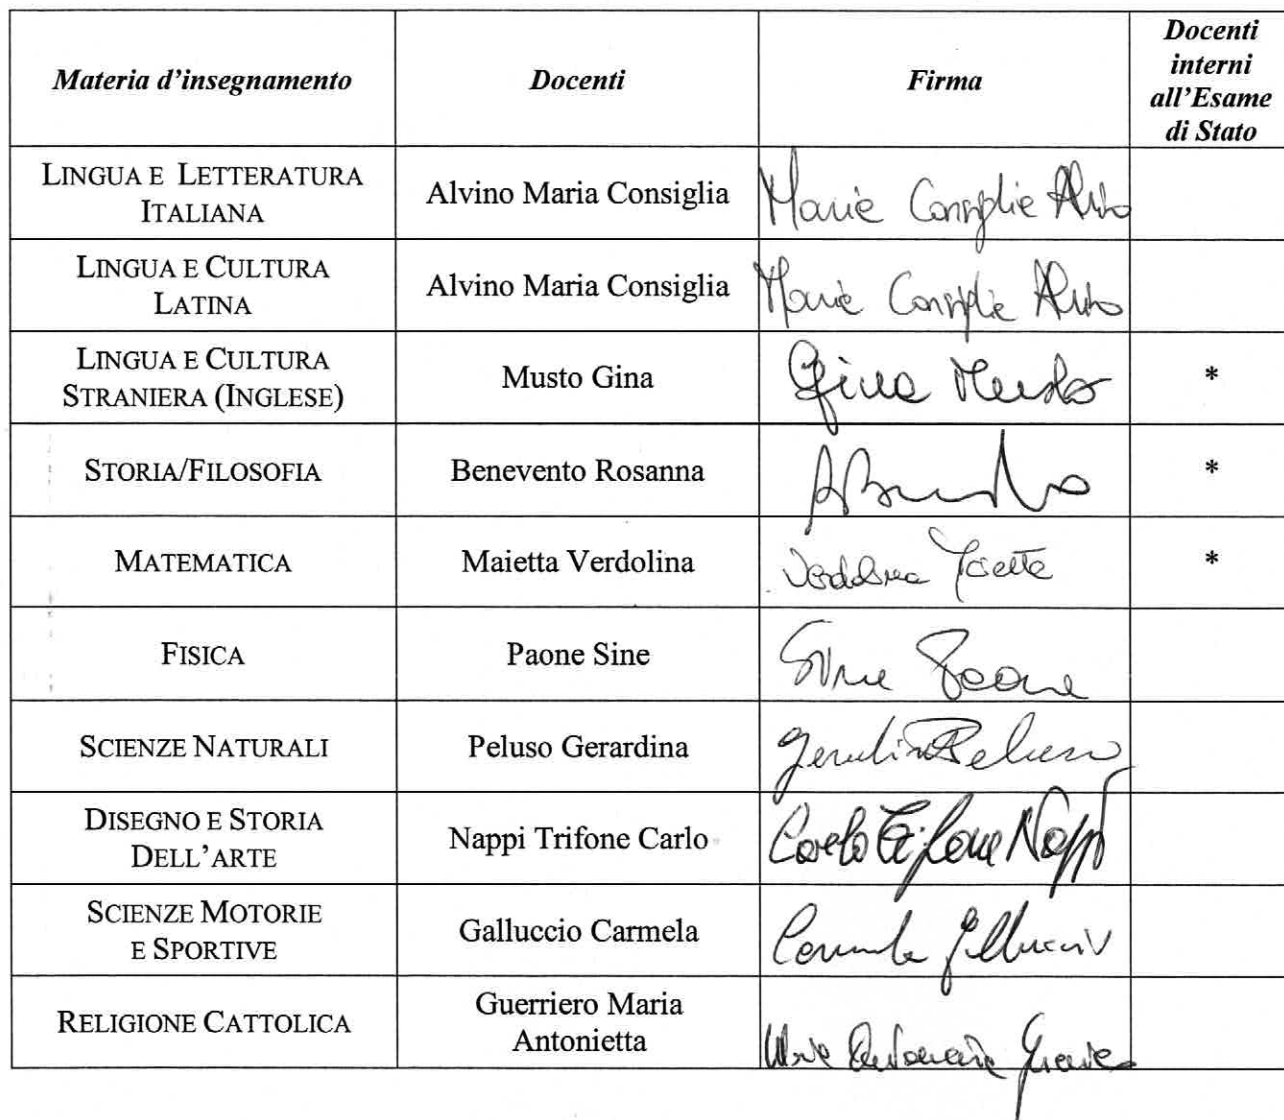 Materia d'insegnamento
Docenti
Firma
Docenti
interni
all'Esame
di Stato
LINGUA E LETTERATURA
ITALIANA
Alvino Maria Consiglia
Maria Consiglia Alvino
LINGUA E CULTURA
LATINA
Alvino Maria Consiglia
Maria Consiglia Alvino
LINGUA E CULTURA
STRANIERA (INGLESE)
Musto Gina
Gina Musto
*
STORIA/FILOSOFIA
Benevento Rosanna
*
MATEMATICA
Maietta Verdolina
Verdolina Maietta
*
FISICA
Paone Sine
Sine Paone
SCIENZE NATURALI
Peluso Gerardina
Gerardina Peluso
DISEGNO E STORIA
DELL'ARTE
Nappi Trifone Carlo
Carlo Trifone Nappi
SCIENZE MOTORIE
E SPORTIVE
Galluccio Carmela
Carmela Galluccio
RELIGIONE CATTOLICA
Guerriero Maria
Antonietta
Maria Antonietta Guerriero